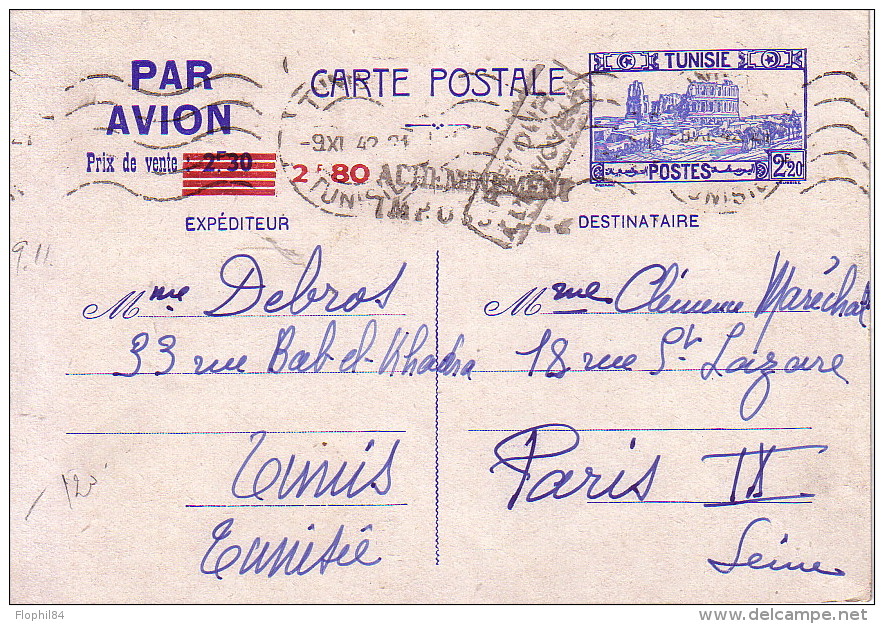 PAR
AVION
Prix de vente : 2F30
2F80
CARTE POSTALE
TUNISIE
POSTES
2F20
-9 XI 42
TUNIS
ACHEMINEMENT
EXPÉDITEUR
DESTINATAIRE
9.11
Mme Debros
33 rue Bab-el-Khadra
Tunis
Tunisie
Mme Clémence Maréchal
18 rue St Lazare
Paris IX
Seine
Flophil84
www.delcampe.net